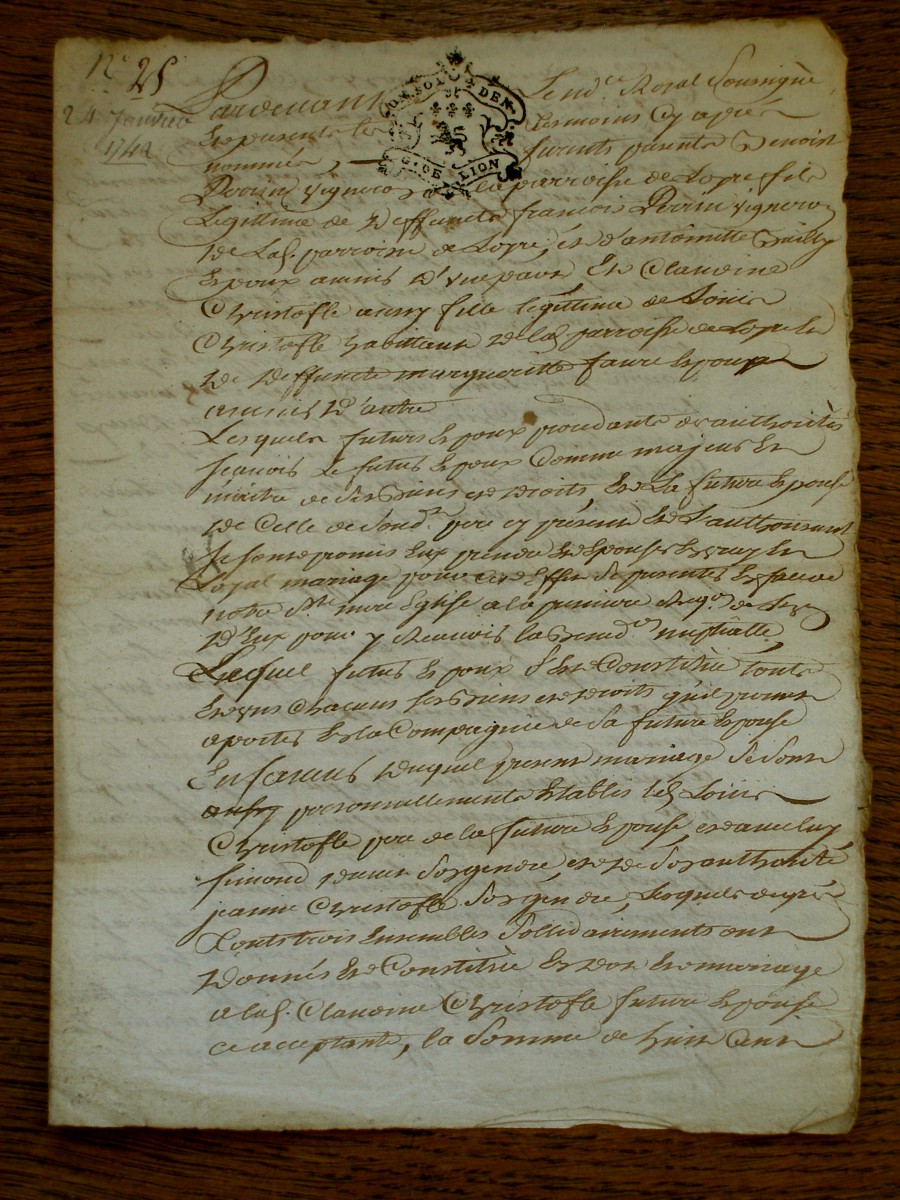 N° 25
24 Janvier
1742
UN SOL DEN.
G. DE LION
Pardevant Le no.re Royal Soussigné
Et présents les témoins cy après
nommés, furent présents Benoist
Perrin vigneron de la parroisse de Loyre fils
Legittime de deffunct françois Perrin vigneron
de lad. parroisse de Loyre, et d'antoinette
Epoux amiés d'une part Et Claudine
Christofle aussy fille légittime de Loüis
Christofle habittant de lad parroisse de Loyre Et
de deffuncte margueritte faure Epoux
amiés d'autre
Lesquels futurs Epoux procedants et authorisés
sçavoir Le futur Epoux Comme majeur Et
maitre de ses Biens et droits, Et La future Epouse
de Celle de Sond. pere cy présent Et L'authorisant
Se sont promis Eux prendre Et Epouser En vray Et
Loyal mariage pour cet Effet Se presenter En face de
notre Ste mere Eglise a la premiere Requ.on de L'un
d'Eux pour y Recevoir la Bened.on nuptialle,
Lequel futur Epoux S'Est Constitué touts
Et uns Chacuns ses Biens et droits qu'il promet
aporter En la Compagnie de Sa future Epouse
En faveur duquel present mariage Se Sont
personnellement Etablis led. Loüis
Christofle pere de la future Epouse, et avec luy
Simond Son gendre, et de Son authorité
jeanne Christofle Lesquels
touts trois Ensembles Sollidairements ont
donnés Et Constitué En dot Et mariage
a lad. Claudine Christofle future Epouse
acceptante, la Somme de huit Cent